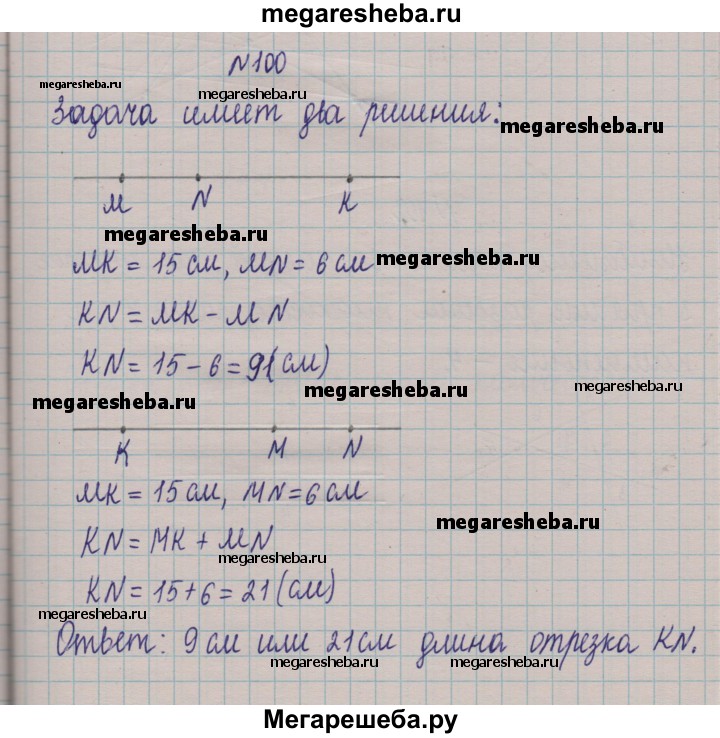 megaresheba.ru
N100
megaresheba.ru
megaresheba.ru
Задача имеет два решения:
megaresheba.ru
M N K
megaresheba.ru
MK = 15 см, MN = 6 см
megaresheba.ru
KN = MK - MN
KN = 15 - 6 = 9 (см)
megaresheba.ru
megaresheba.ru
megaresheba.ru
K M N
MK = 15 см, MN = 6 см
megaresheba.ru
KN = MK + MN
megaresheba.ru
KN = 15 + 6 = 21 (см)
megaresheba.ru
Ответ: 9 см или 21 см длина отрезка KN.
megaresheba.ru
megaresheba.ru
Мегарешеба.ру